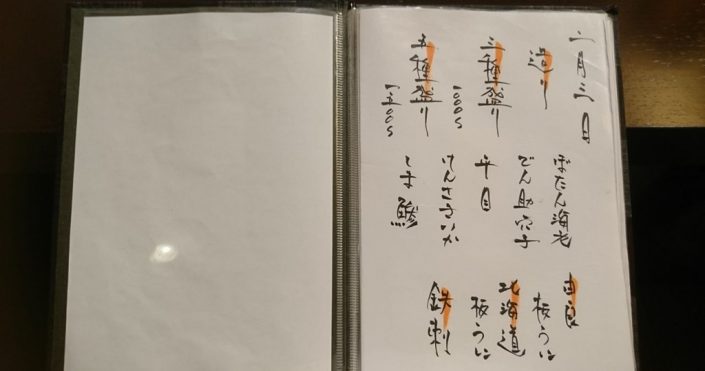 二月三日
造り
三種盛り
1000S
五種盛り
1500S
ぼたん海老
でん助穴子
平目
けんさきいか
しま鯵
由良
板うに
北海道
板うに
鉄刺